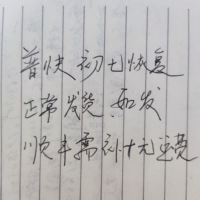 普快初七恢复
正常发货.如发
顺丰需补十元运费